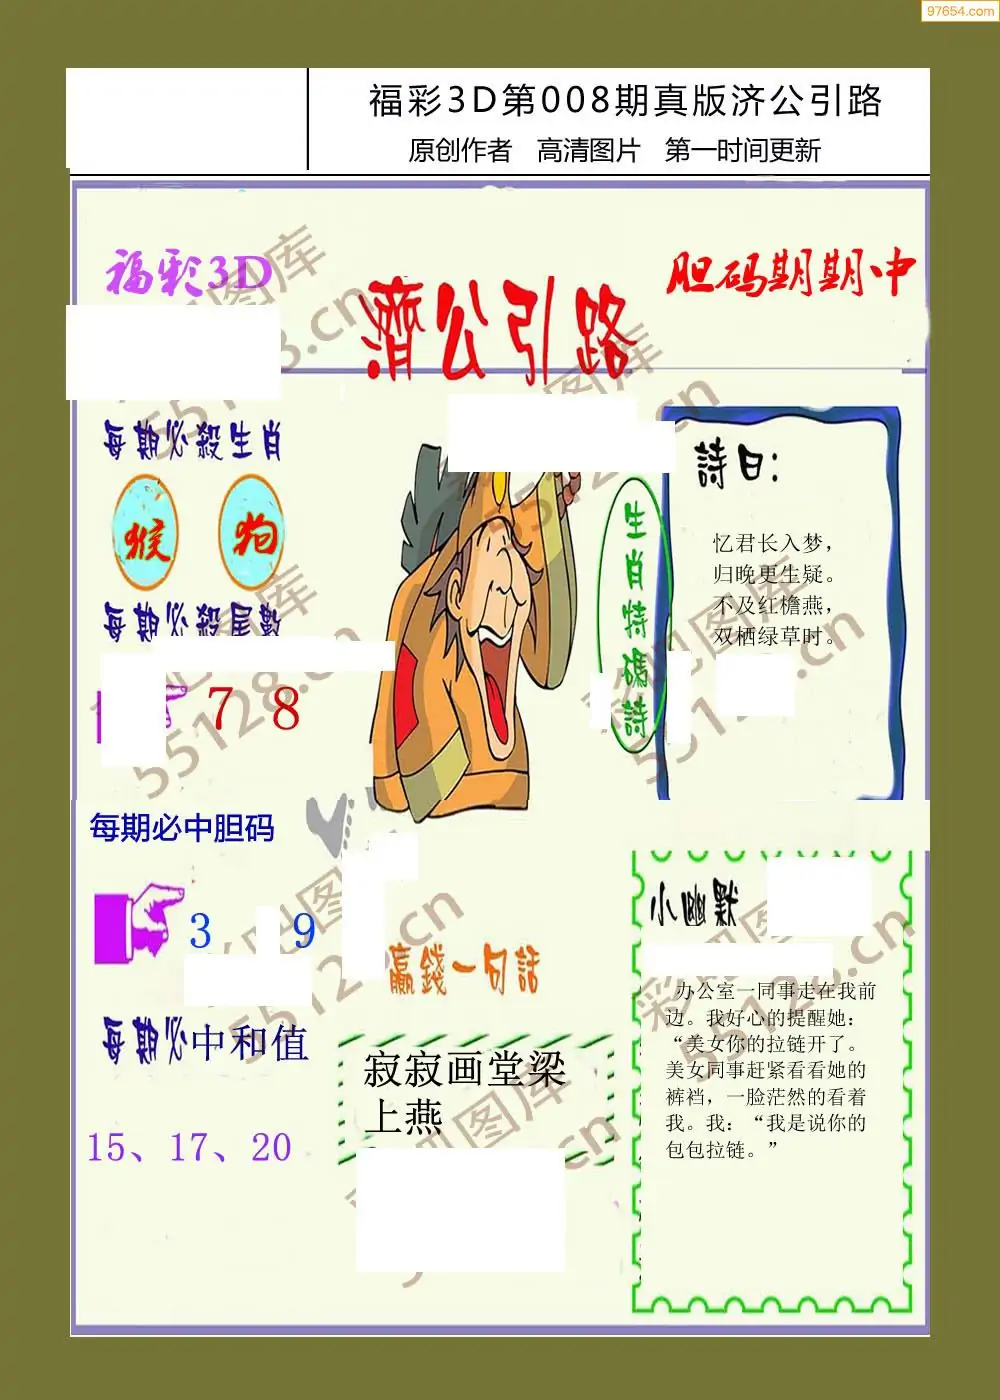 97654.com
福彩3D第008期真版济公引路
原创作者 高清图片 第一时间更新
福彩3D
濟公引路
胆码期期中
每期必殺生肖
猴 狗
每期必殺尾數
7 8
每期必中胆码
3 9
每期必中和值
15、17、20
生肖特碼詩
詩曰：
忆君长入梦，
归晚更生疑。
不及红檐燕，
双栖绿草时。
赢錢一句話
寂寂画堂梁
上燕
小幽默
办公室一同事走在我前
边。我好心的提醒她：
“美女你的拉链开了。
美女同事赶紧看看她的
裤裆，一脸茫然的看着
我。我：“我是说你的
包包拉链。”
彩吧图库
55128.cn